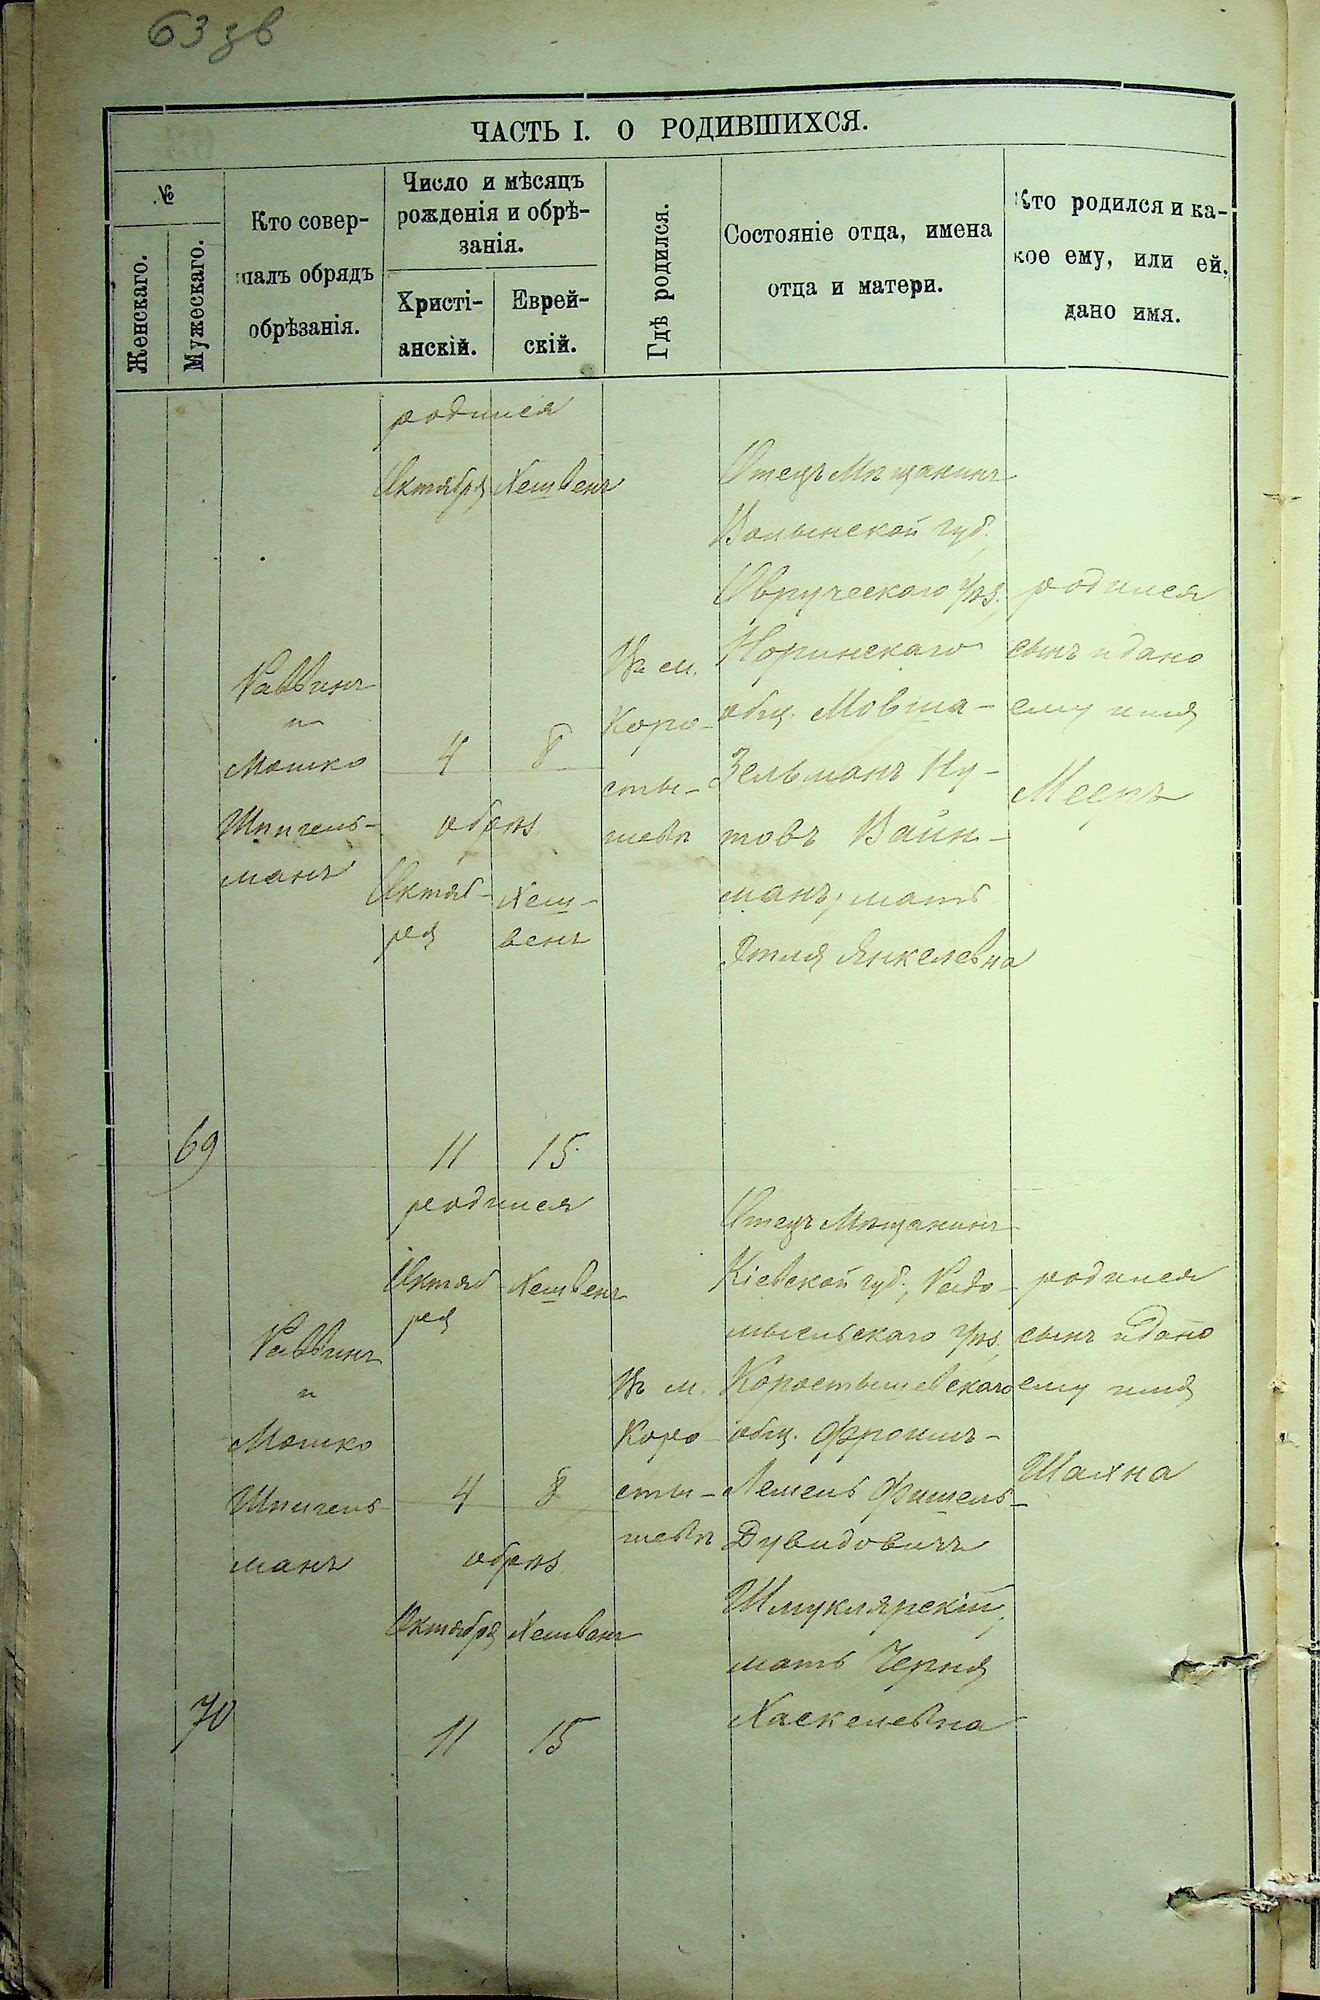 63 зв
ЧАСТЬ I. О РОДИВШИХСЯ.
№
Женскаго.
Мужескаго.
Кто совер-
шалъ обрядъ
обрѣзанія.
Число и мѣсяцъ
рожденія и обрѣ-
занія.
Христі-
анскій.
Еврей-
скій.
Гдѣ родился.
Состояніе отца, имена
отца и матери.
Кто родился и ка-
кое ему, или ей,
дано имя.
69
Раввинъ
и
Мошко
Шпигель-
манъ
родился
Октября Хешвенъ
4 8
обрѣз
Октяб- Хеш-
ря венъ
11 15
Въ м.
Коро-
сты-
шевѣ
Отецъ Мѣщанинъ
Волынской губ.,
Овручскаго уѣз.,
Норинскаго
общ. Мовша-
Зельманъ Ну-
товъ Вайн-
манъ, мать
Этля Янкелевна
родился
сынъ и дано
ему имя
Мееръ
70
Раввинъ
и
Мошко
Шпигель-
манъ
родился
Октяб- Хешвенъ
ря
4 8
обрѣз.
Октября Хешвенъ
11 15
Въ м.
Коро-
сты-
шевѣ
Отецъ Мѣщанинъ
Кіевской губ., Радо-
мысльскаго уѣз.,
Коростышевскаго
общ. Фроимъ-
Лемель Фишель-
Дувидовичъ
Шмуклярскій,
мать Черня
Хаскелевна
родился
сынъ и дано
ему имя
Шахна